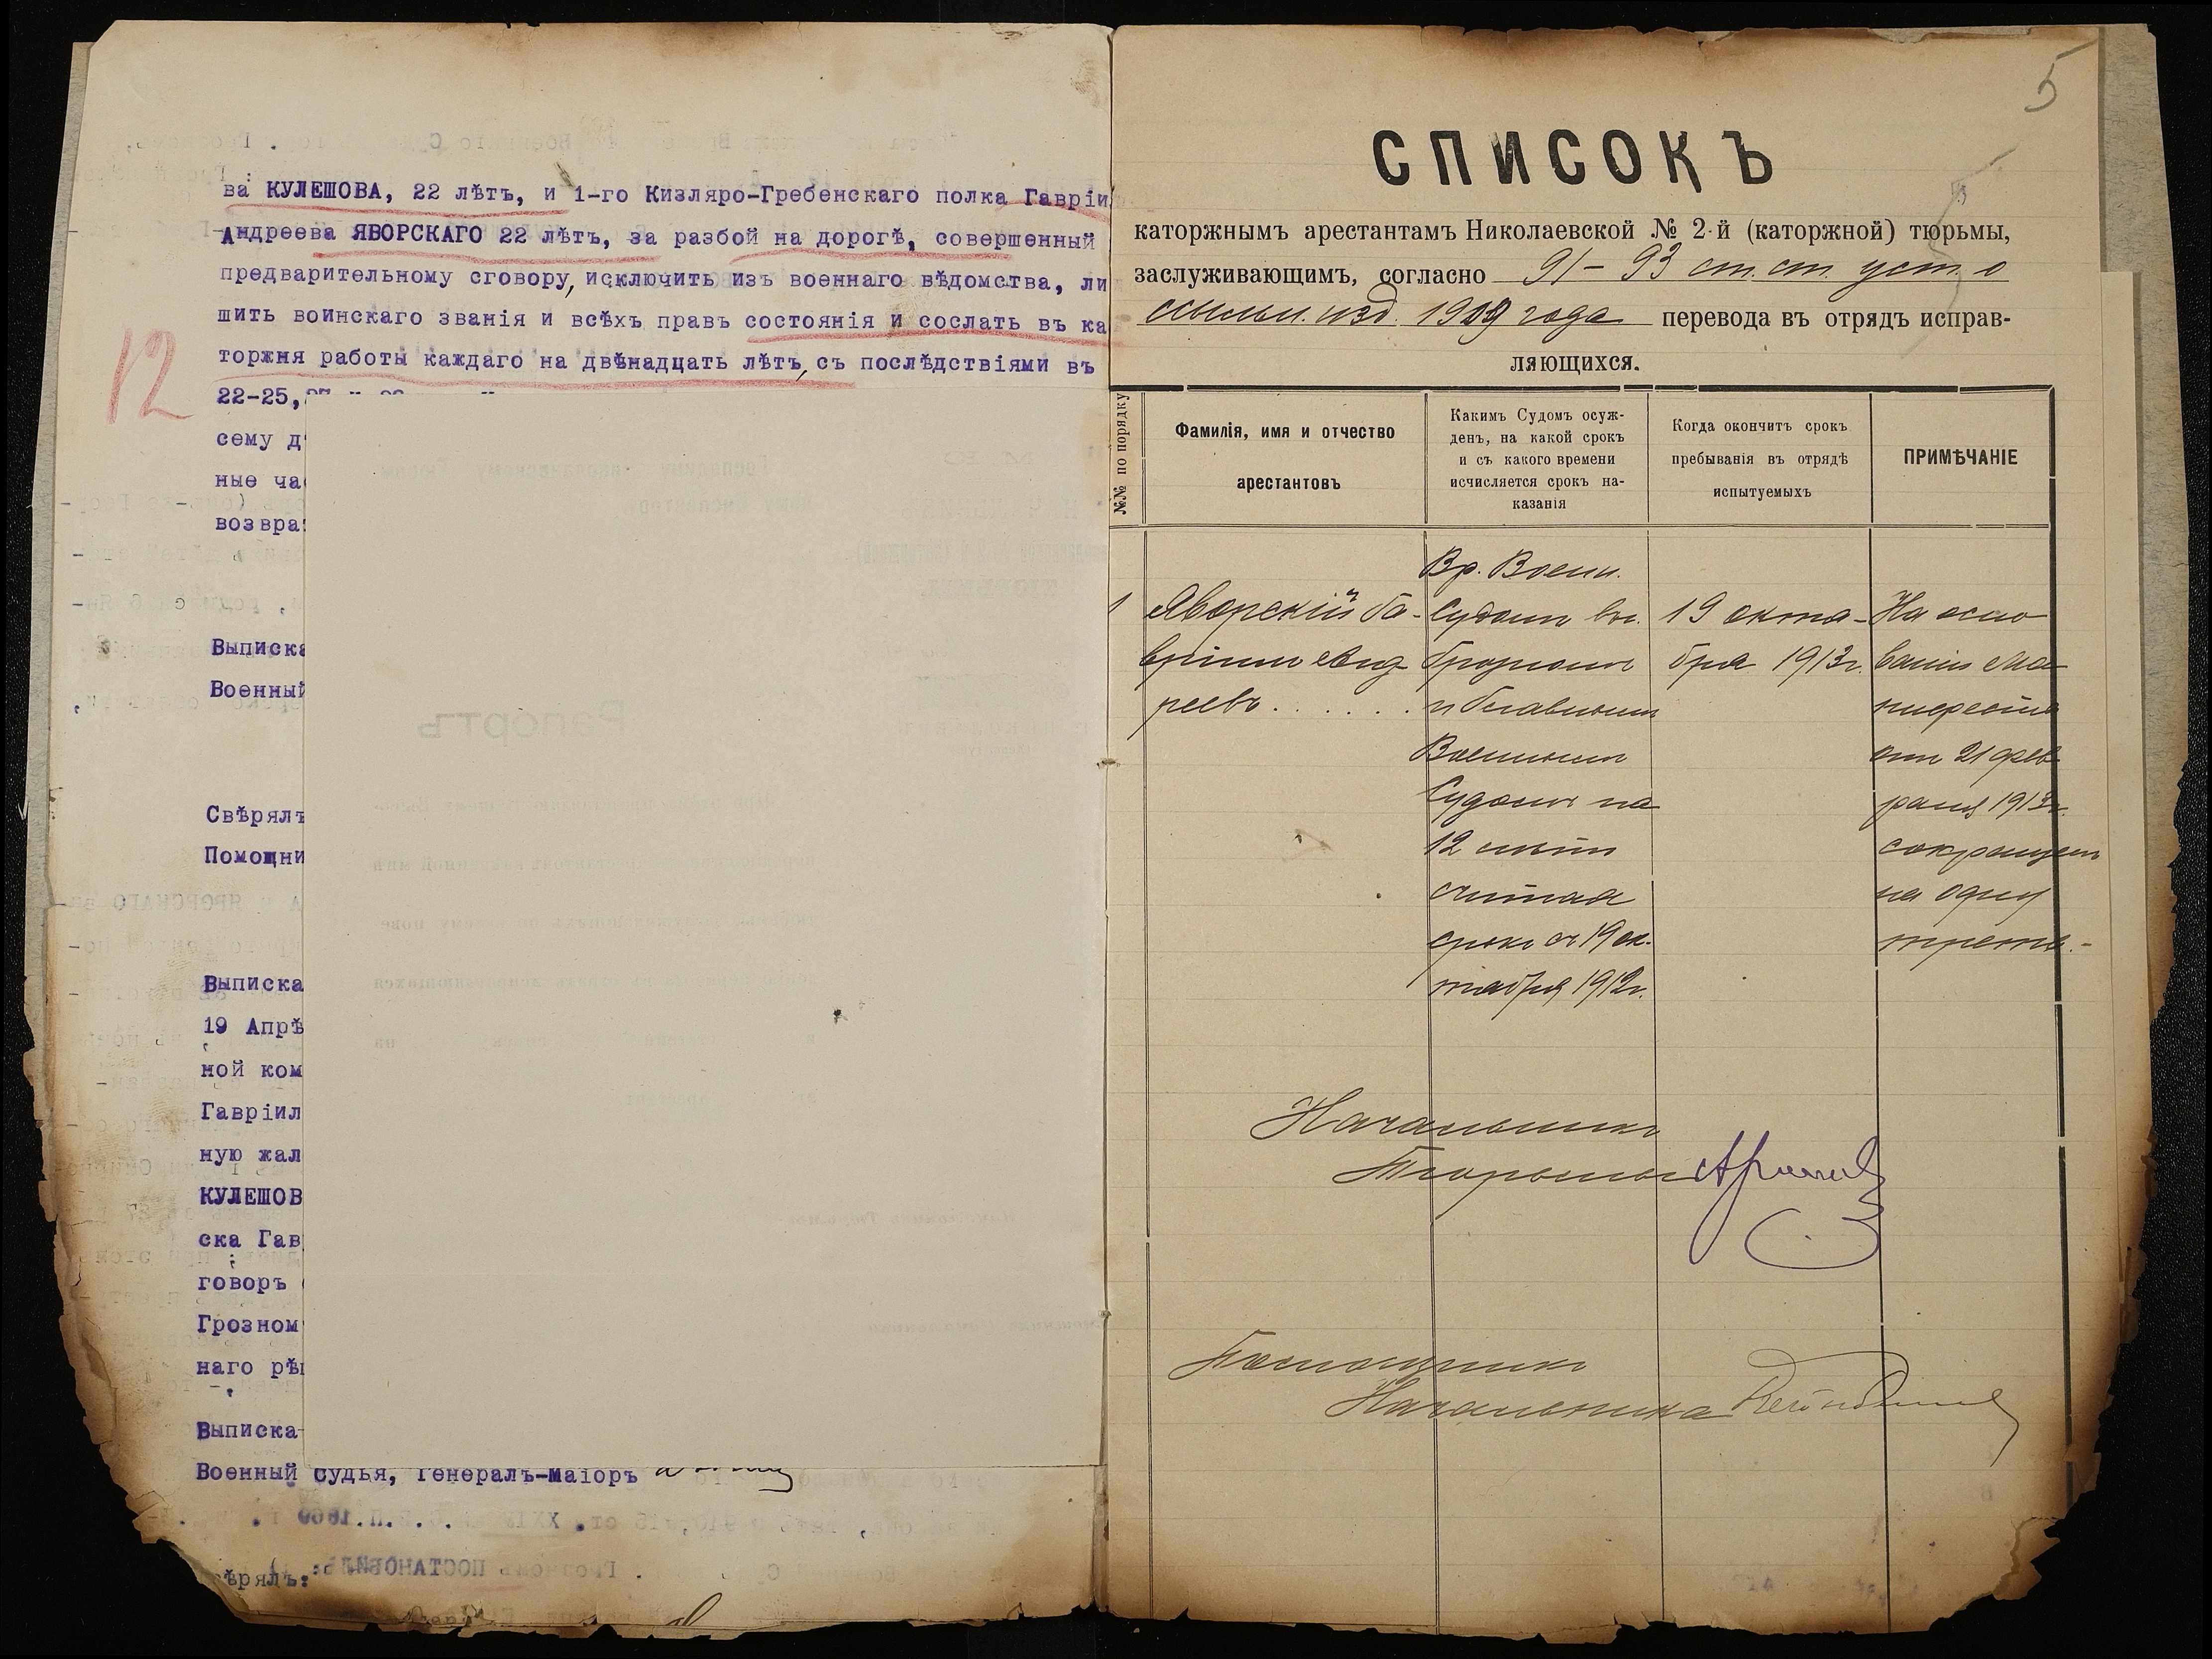 ва КУЛЕШОВА, 22 лѣтъ, и 1-го Кизляро-Гребенскаго полка Гавріи
Андреева ЯВОРСКАГО 22 лѣтъ, за разбой на дорогѣ, совершенный
предварительному сговору, исключить изъ военнаго вѣдомства, ли
шить воинскаго званія и всѣхъ правъ состоянія и сослать въ ка
торжня работы каждаго на двѣнадцать лѣтъ, съ послѣдствіями въ
12
22-25,
сему д
ные ча
возвра
Выписка
Военный
Свѣрялъ
Помощни
Выписка
19 Апрѣ
ной ком
Гавріил
ную жал
КУЛЕШОВ
ска Гав
говоръ
Грозном
наго рѣ
Выписка
Военный Судья, Генералъ-Маіоръ
ѣрялъ:
5
СПИСОКЪ
каторжнымъ арестантамъ Николаевской № 2-й (каторжной) тюрьмы,
заслуживающимъ, согласно 91-93 ст. ст. уст. о
ссыльн. изд. 1909 года перевода въ отрядъ исправ-
ляющихся.
№№ по порядку
Фамилія, имя и отчество
арестантовъ
Какимъ Судомъ осуж-
денъ, на какой срокъ
и съ какого времени
исчисляется срокъ на-
казанія
Когда окончитъ срокъ
пребыванія въ отрядѣ
испытуемыхъ
ПРИМѢЧАНІЕ
1
Яворскій Га-
вріилъ Анд
реевъ . . . . . .
Вр. Воен.
Судомъ въ г.
Грозномъ
Военнымъ
Судомъ на
12 лѣтъ
считая
срокъ съ 19 ок-
тября 1912г.
19 октя-
бря 1913г.
На осно
ваніи Ма-
нифеста
отъ 21 фев
раля 1913г.
сокращенъ
на одну
треть.-
Начальникъ
Тюрьмы
Помощникъ
Начальника